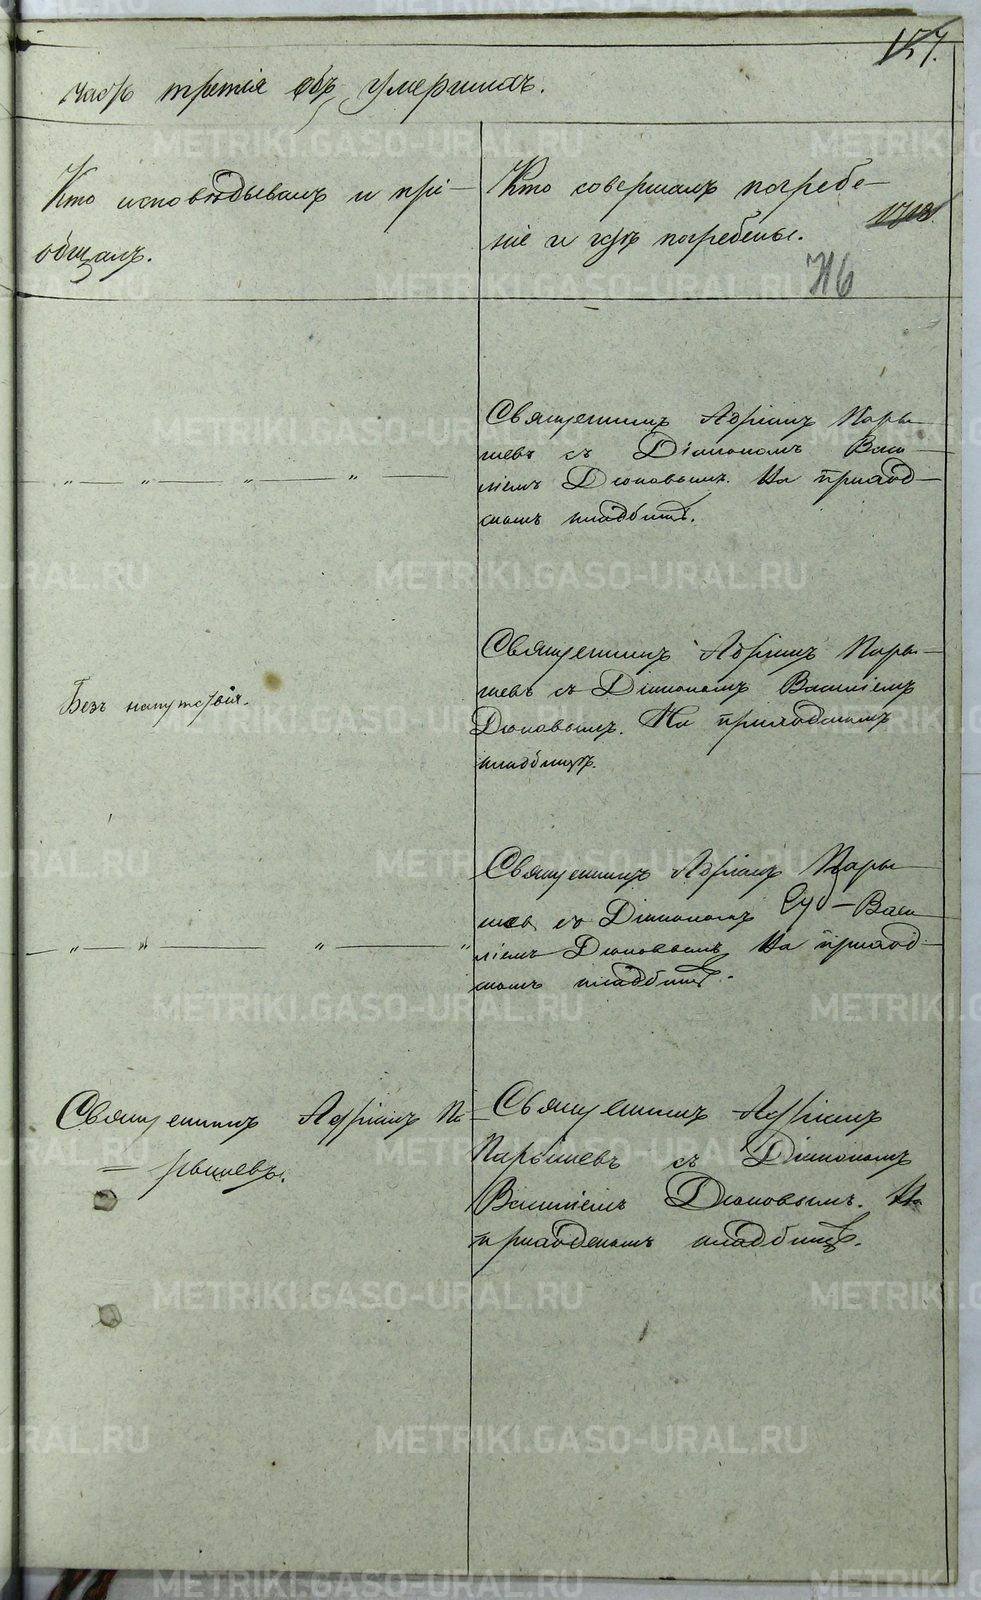 часть третія объ умершихъ.
Кто исповѣдывалъ и прі-
общалъ.
Кто совершалъ погребе-
ніе и гдѣ погребены.
716
Священникъ Адріанъ Пары-
шевъ съ Діакономъ Васи-
ліемъ Дюковымъ. На приход-
скомъ кладбищѣ.
— „ — „ — „ — „ —
Священникъ Адріанъ Пары-
шевъ съ Діакономъ Василіемъ
Дюковымъ. На приходскомъ
кладбищѣ.
Безъ напутствія.
Священникъ Адріанъ Пары-
шевъ съ Діакономъ Васи-
ліемъ Дюковымъ На приход-
скомъ кладбищѣ.
— „ — „ — „ — „
Священникъ Адріанъ Па-
рышевъ.
Священникъ Адріанъ
Парышевъ съ Діакономъ
Василіемъ Дюковымъ. На
приходскомъ кладбищѣ.
METRIKI.GASO-URAL.RU